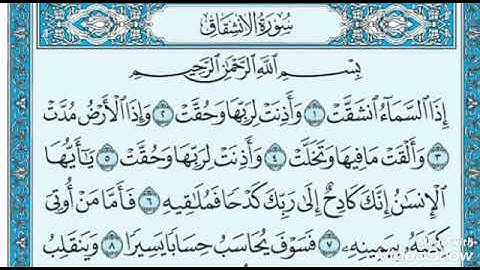 سُورَةُ الِانشِقَاقِ
بِسْمِ اللَّهِ الرَّحْمَٰنِ الرَّحِيمِ
إِذَا السَّمَاءُ انشَقَّتْ ١ وَأَذِنَتْ لِرَبِّهَا وَحُقَّتْ ٢ وَإِذَا الْأَرْضُ مُدَّتْ
٣ وَأَلْقَتْ مَا فِيهَا وَتَخَلَّتْ ٤ وَأَذِنَتْ لِرَبِّهَا وَحُقَّتْ ٥ يَا أَيُّهَا
الْإِنسَانُ إِنَّكَ كَادِحٌ إِلَىٰ رَبِّكَ كَدْحًا فَمُلَاقِيهِ ٦ فَأَمَّا مَنْ أُوتِيَ
كِتَابَهُ بِيَمِينِهِ ٧ فَسَوْفَ يُحَاسَبُ حِسَابًا يَسِيرًا ٨ وَيَنقَلِبُ